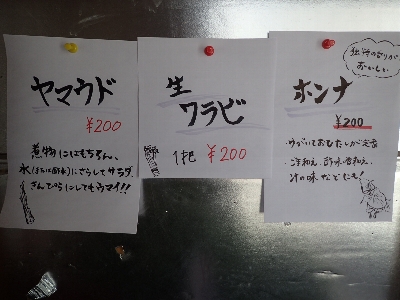 ヤマウド
¥200
煮物にはもちろん、
水(または酢水)にさらしてサラダ、
きんぴらにしてもうマイ!!
生
ワラビ
1把 ¥200
独特の香りが
おいしい
ホンナ
¥200
ゆがいておひたしが定番
ごま和え、酢味噌和え、
汁の味などにも!